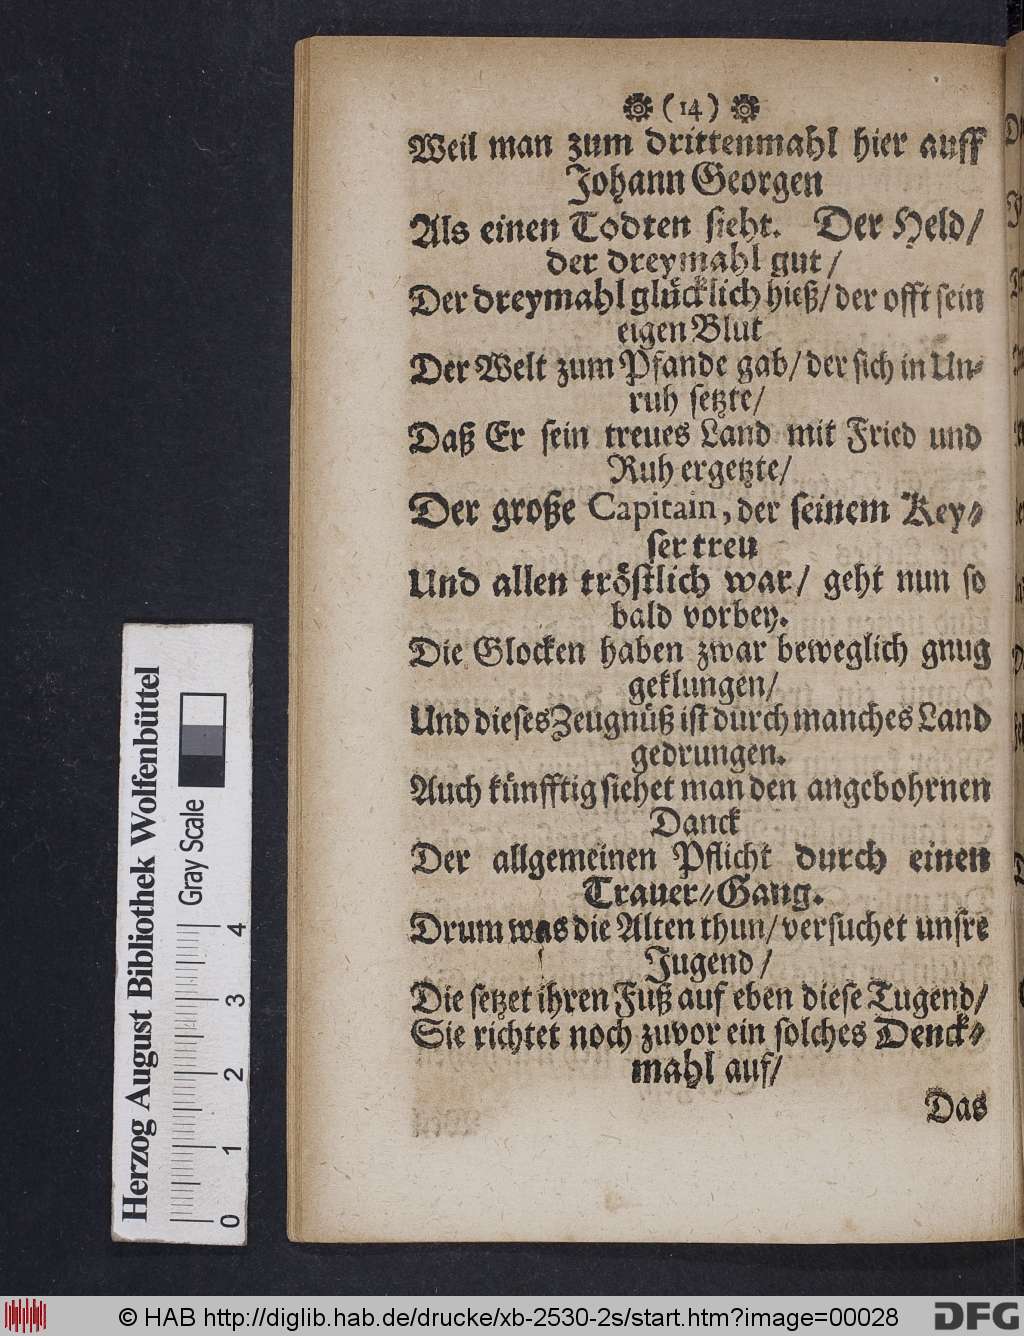 (14)
Weil man zum drittenmahl hier auff
Johann Georgen
Als einen Todten sieht. Der Held/
der dreymahl gut/
Der dreymahl glücklich hieß/ der offt sein
eigen Blut
Der Welt zum Pfande gab/ der sich in Un-
ruh setzte/
Daß Er sein treues Land mit Fried und
Ruh ergetzte/
Der große Capitain, der seinem Key-
ser treu
Und allen tröstlich war/ geht nun so
bald vorbey.
Die Glocken haben zwar beweglich gnug
geklungen/
Und dieses Zeugnüß ist durch manches Land
gedrungen.
Auch künfftig siehet man den angebohrnen
Danck
Der allgemeinen Pflicht durch einen
Trauer-Gang.
Drum was die Alten thun/ versuchet unsre
Jugend/
Die setzet ihren Fuß auf eben diese Tugend/
Sie richtet noch zuvor ein solches Denck-
mahl auf/
Das
Herzog August Bibliothek Wolfenbüttel
Gray Scale
0 1 2 3 4
© HAB http://diglib.hab.de/drucke/xb-2530-2s/start.htm?image=00028
DFG